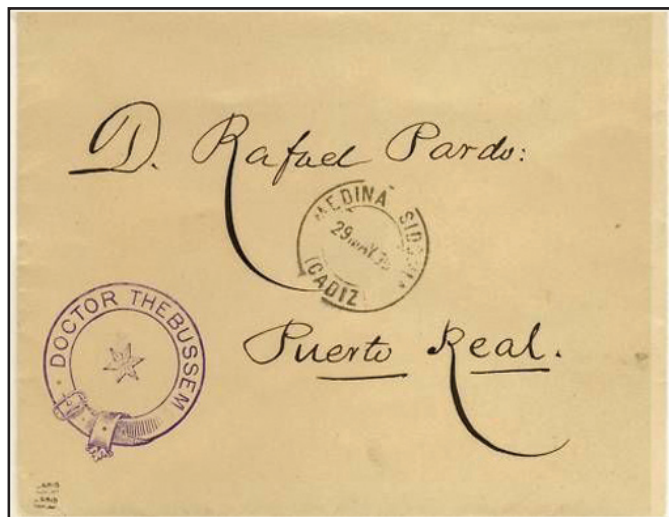 D. Rafael Pardo:
MEDINA SIDONIA
29 MAY
(CADIZ)
DOCTOR THEBUSSEM
Puerto Real.